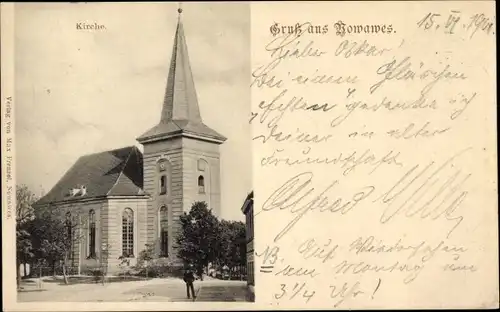 Kirche.
Gruß aus Nowawes.
15. VI. 1901.
Lieber Oskar!
Bei einem Gläschen
gedenke ich
Deiner in alter
Freundschaft
Alfred
NB. Auf Wiedersehen
am Montag um
3/4 Uhr!
Verlag von Max Frenzel, Nowawes.